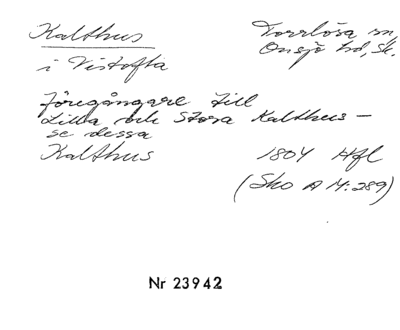 Kalthus
Torrlösa sn,
Onsjö hd, Sk.
i Vistofta
föregångare till
Lilla och Stora Kalthus –
se dessa
Kalthus 1804 Hfl
(Sko A M:289)
Nr 23942